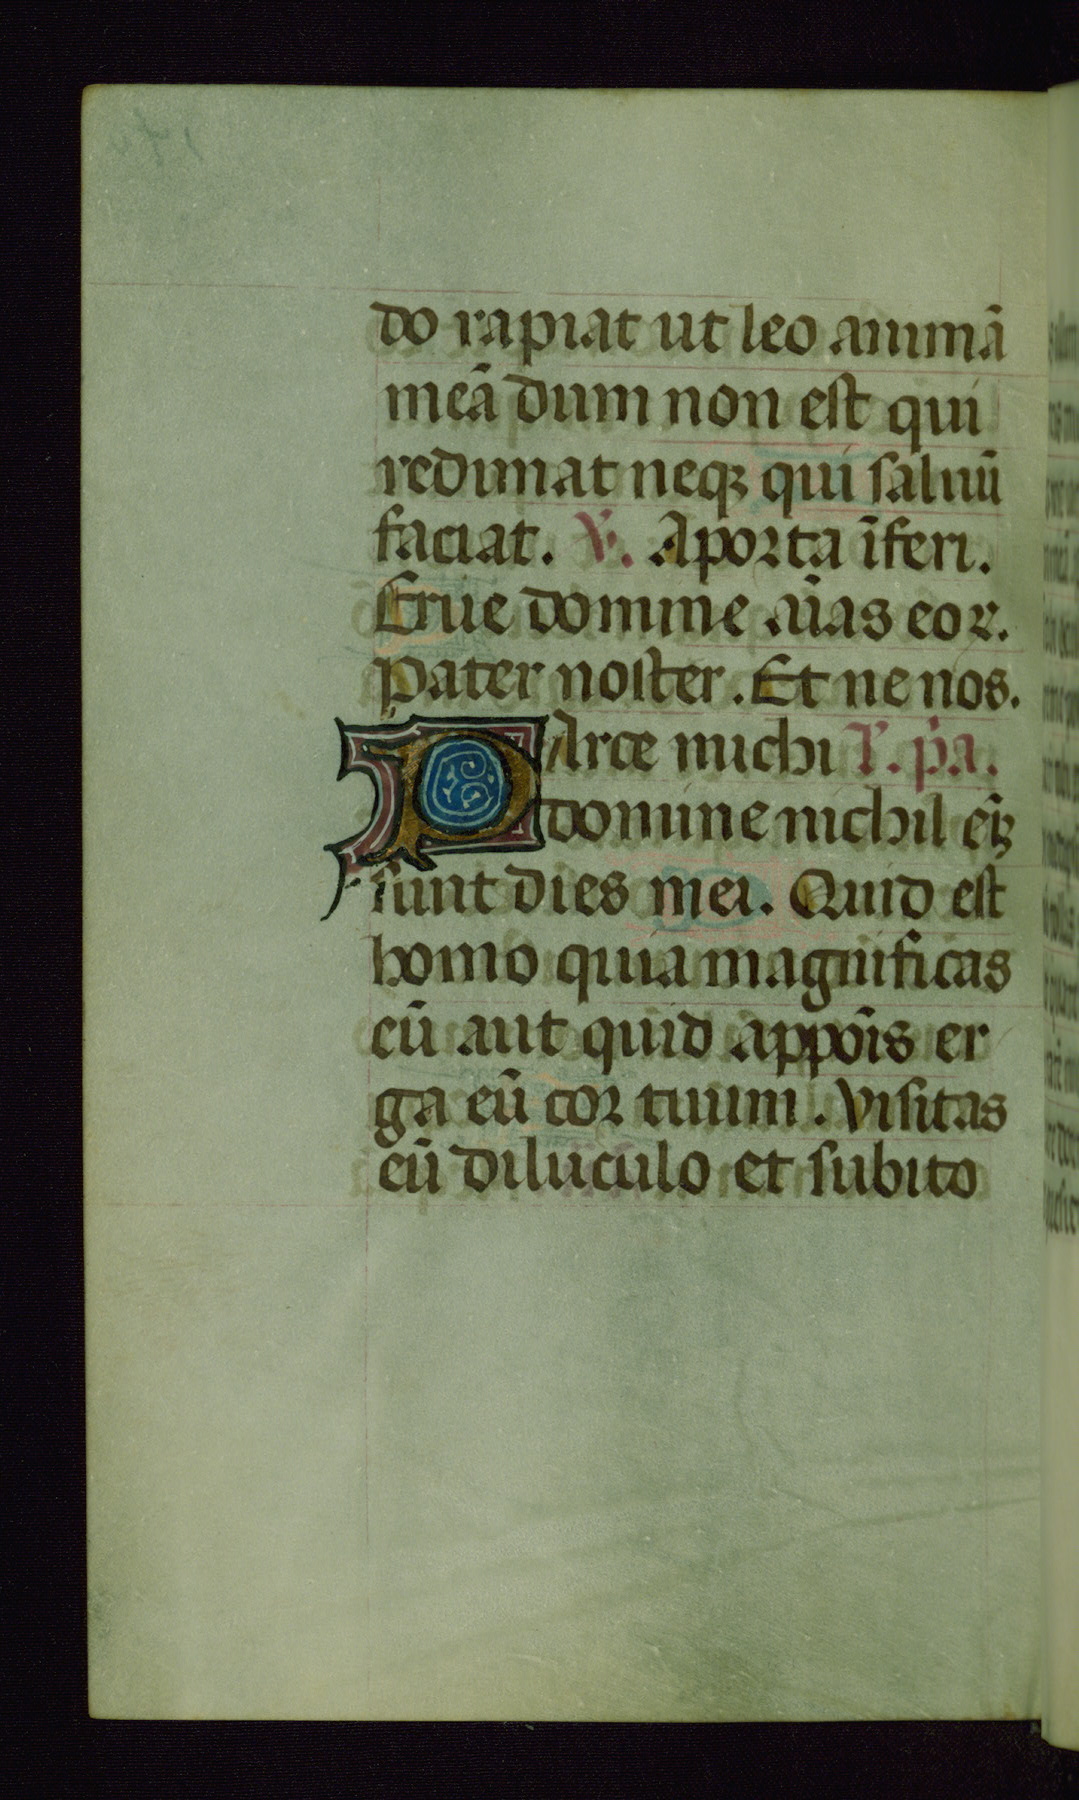 do rapiat ut leo animā
meā dum non est qui
redimat neqꝫ qui saluū
faciat. V. Aporta īferi.
Erue domine aīas eoꝛ.
Pater noster. Et ne nos.
PArce michi l. pͥa.
domine nichil eīꝫ
sunt dies mei. Quid est
homo quia magnificas
eū aut quid appōis er
ga eū coꝛ tuum. Visitas
eū diluculo et subito